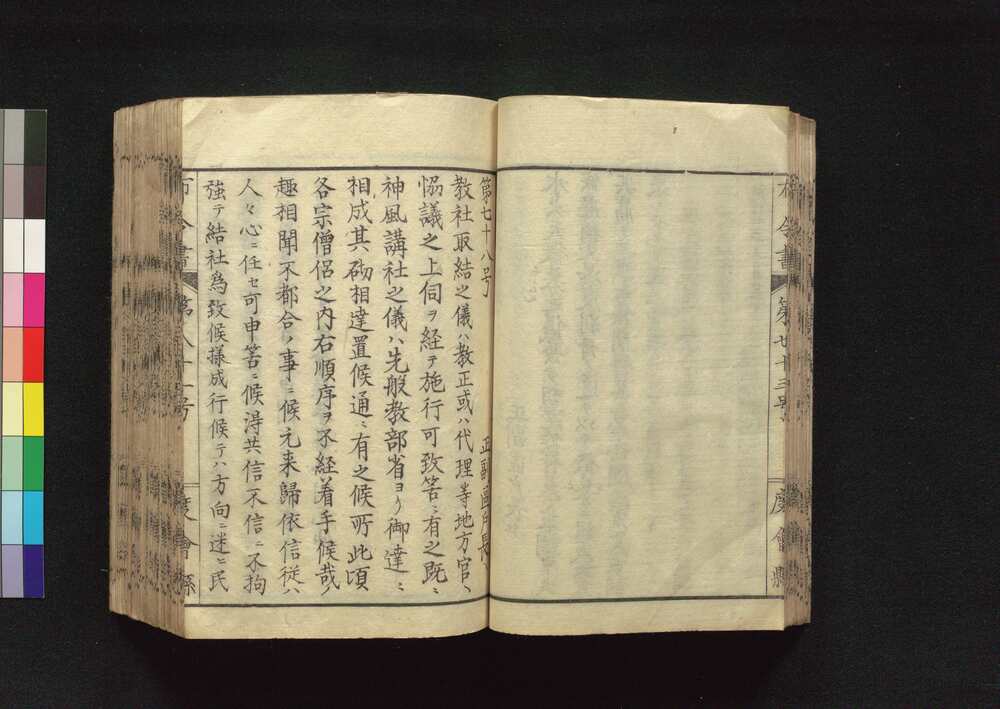 布令書 第廿十三号 度會縣
第七十八号 正副區戸長
教社取結之儀ハ教正或ハ代理等地方官ヘ
協議之上伺ヲ経テ施行可致筈ニ有之既ニ
神風講社之儀ハ先般教部省ヨリ御達ニ
相成其砌相達置候通ニ有之候所此頃
各宗僧侶之内右順序ヲ不経着手候哉ノ
趣相聞不都合ノ事ニ候元来歸依信従ハ
人々心ニ任セ可申筈ニ候得共信不信ニ不拘
強テ結社為致候様成行候テハ方向ニ迷ヒ民
布令書 第八十一号 度會縣